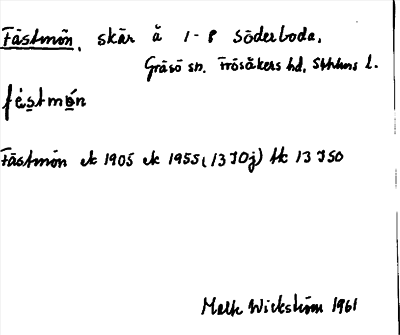 Fästmön, skär å 1-8 Söderboda,
Gräsö sn. Frösåkers hd, Sthlms l.
féstmön
Fästmön ek 1905 ek 1955 (13 I 0j) tk 13 I 50
Melk Wickström 1961